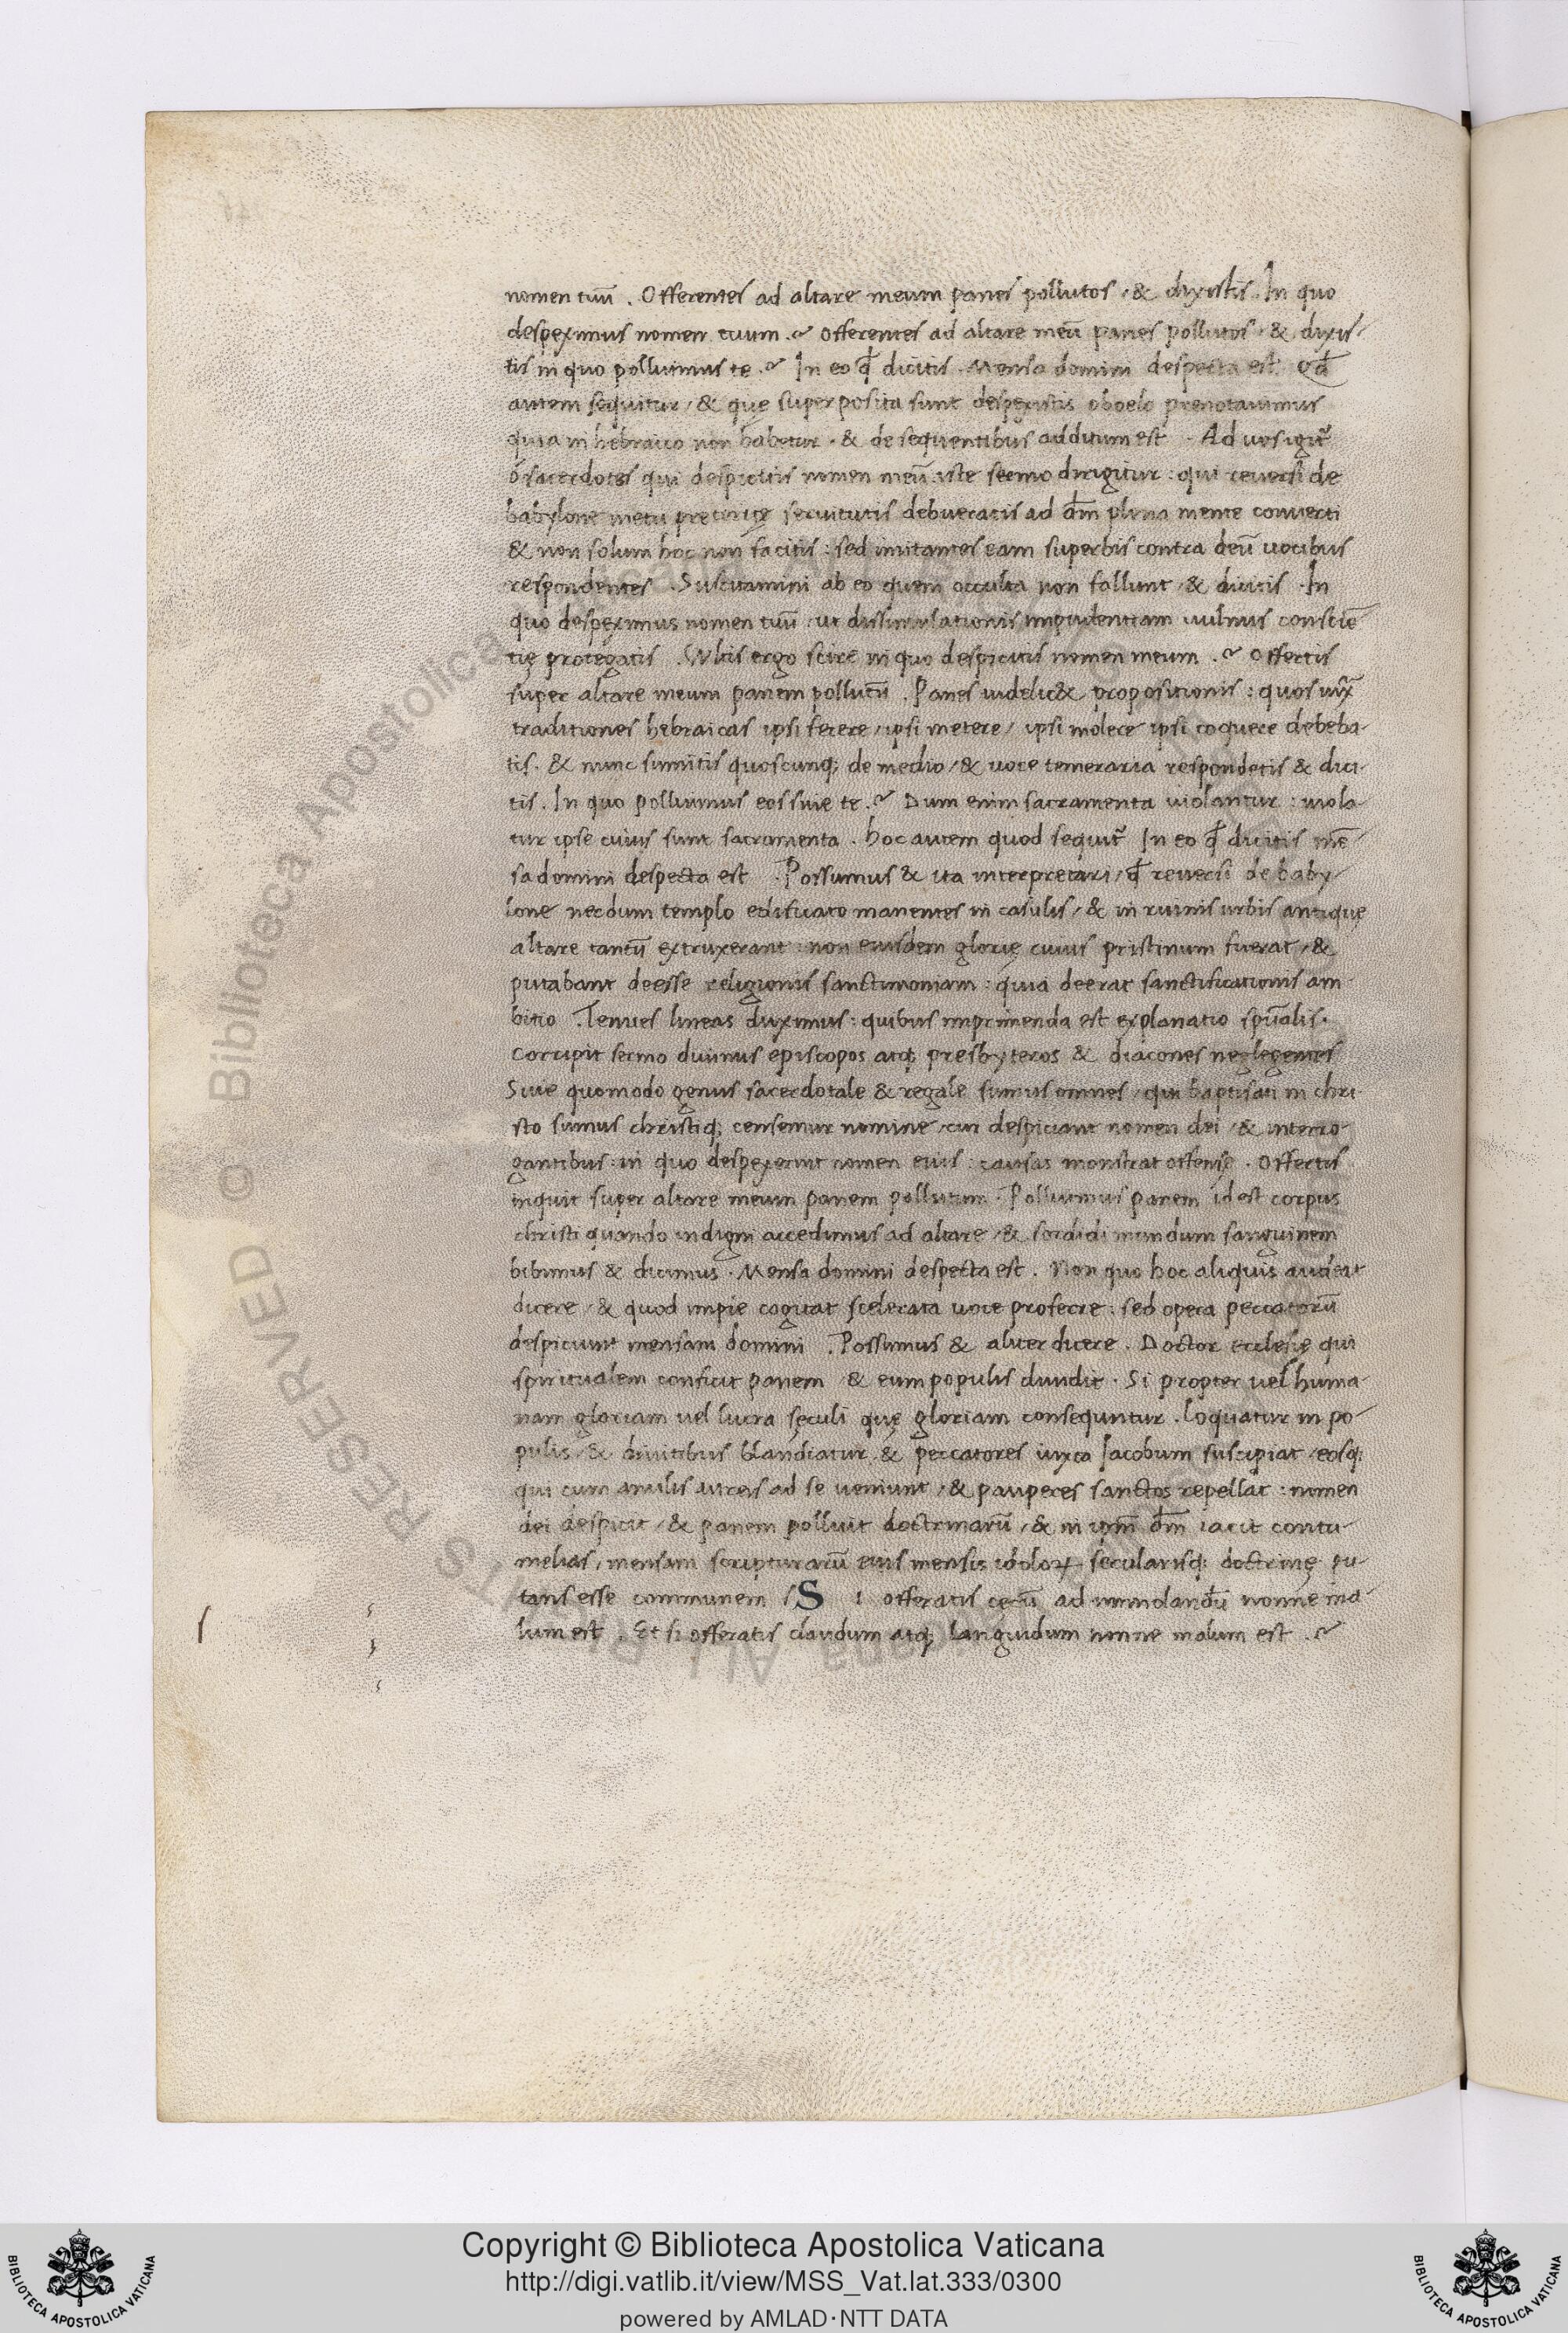 nomen tuū . Offerentes ad altare meum panes pollutos / & dixistis . In quo
despeximus nomen tuum . ? Offerentes ad altare meū panes pollutos / & dixis/
tis in quo polluimus te . ? In eo qđ dicitis . Mensa domini despecta est . Qđ
autem sequitur / & quę superposita sunt despexistis oboelo prenotauimus
quia in hebraico non habetur . & de sequentibus additum est . Ad uos igit̃
ó sacerdotes qui despicitis nomen meū iste sermo dirigitur : qui reuersi de
babylone metu preteritę seruitutis debueratis ad dm̄ plena mente conuerti
& non solum hoc non facitis : sed imitantes eam superbis contra deū uocibus
respondentes . Suscitamini ab eo quem occulta non fallunt / & dicitis . In
quo despeximus nomen tuū / ut dissimulationis impudentiam uulnus consciē
tię protegatis . Vultis ergo scire in quo despicitis nomen meum . ? Offertis
super altare meum panem pollutū . Panes uidelic& propositionis : quos iux̄
traditiones hebraicas ipsi serere / ipsi metere / ipsi molere ipsi coquere debeba-
tis . & nunc sumitis quoscunq; de medio / & uoce temeraria respondetis & dici-
tis . In quo polluimus eos siue te . ? Dum enim sacramenta uiolantur : uiola-
tur ipse cuius sunt sacramenta . Hoc autem quod sequit̃ In eo qđ dicitis mē
sa domini despecta est . Possumus & ita interpretari / qđ reuersi de baby/
lone necdum templo edificato manentes in casulis / & in ruinis urbis antiquę
altare tantū extruxerant : non eiusdem glorię cuius pristinum fuerat / &
putabant deesse religionis sanctimoniam : quia deerat sanctificationis am
bitio . Tenues lineas duximus : quibus imprimenda est explanatio spūalis .
Corripit sermo diuinus episcopos atq; presbyteros & diacones neglegentes
Siue quomodo genus sacerdotale & regale sumus omnes / qui baptisati in chri-
sto sumus christiq; censemur nomine / cur despiciant nomen dei / & interro-
gantibus : in quo despexerint nomen eius : causas monstrat offensę . Offertis
inquit super altare meum panem pollutum . Polluimus panem idest corpus
christi quando indigni accedimus ad altare / & sordidi mundum sanguinem
bibimus & dicimus . Mensa domini despecta est . Non quo hoc aliquis audeat
dicere / & quod impie cogitat scelerata uoce proferre : sed opera peccatorū
despiciunt mensam domini . Possumus & aliter dicere . Doctor ecclesię qui
spiritualem conficit panem & eum populis diuidit . Si propter uel huma-
nam gloriam uel lucra sęculi quę gloriam consequntur . loquatur in po-
pulis / & diuitibus blandiatur & peccatores iuxta Jacobum suscipiat / eosq;
qui cum anulis aureis ad se ueniunt / & pauperes sanctos repellat : nomen
dei despicit / & panem polluit doctrinarū / & in ipm̄ dm̄ iacit contu-
melias / mensam scripturarū eius mensis idoloꝝ secularisq; doctrinę pu-
tans esse communem s S i offeratis cęcū ad immolandū nonne ma-
lum est . Et si offeratis claudum atq; languidum nonne malum est . ?
Copyright © Biblioteca Apostolica Vaticana
http://digi.vatlib.it/view/MSS_Vat.lat.333/0300
powered by AMLAD·NTT DATA